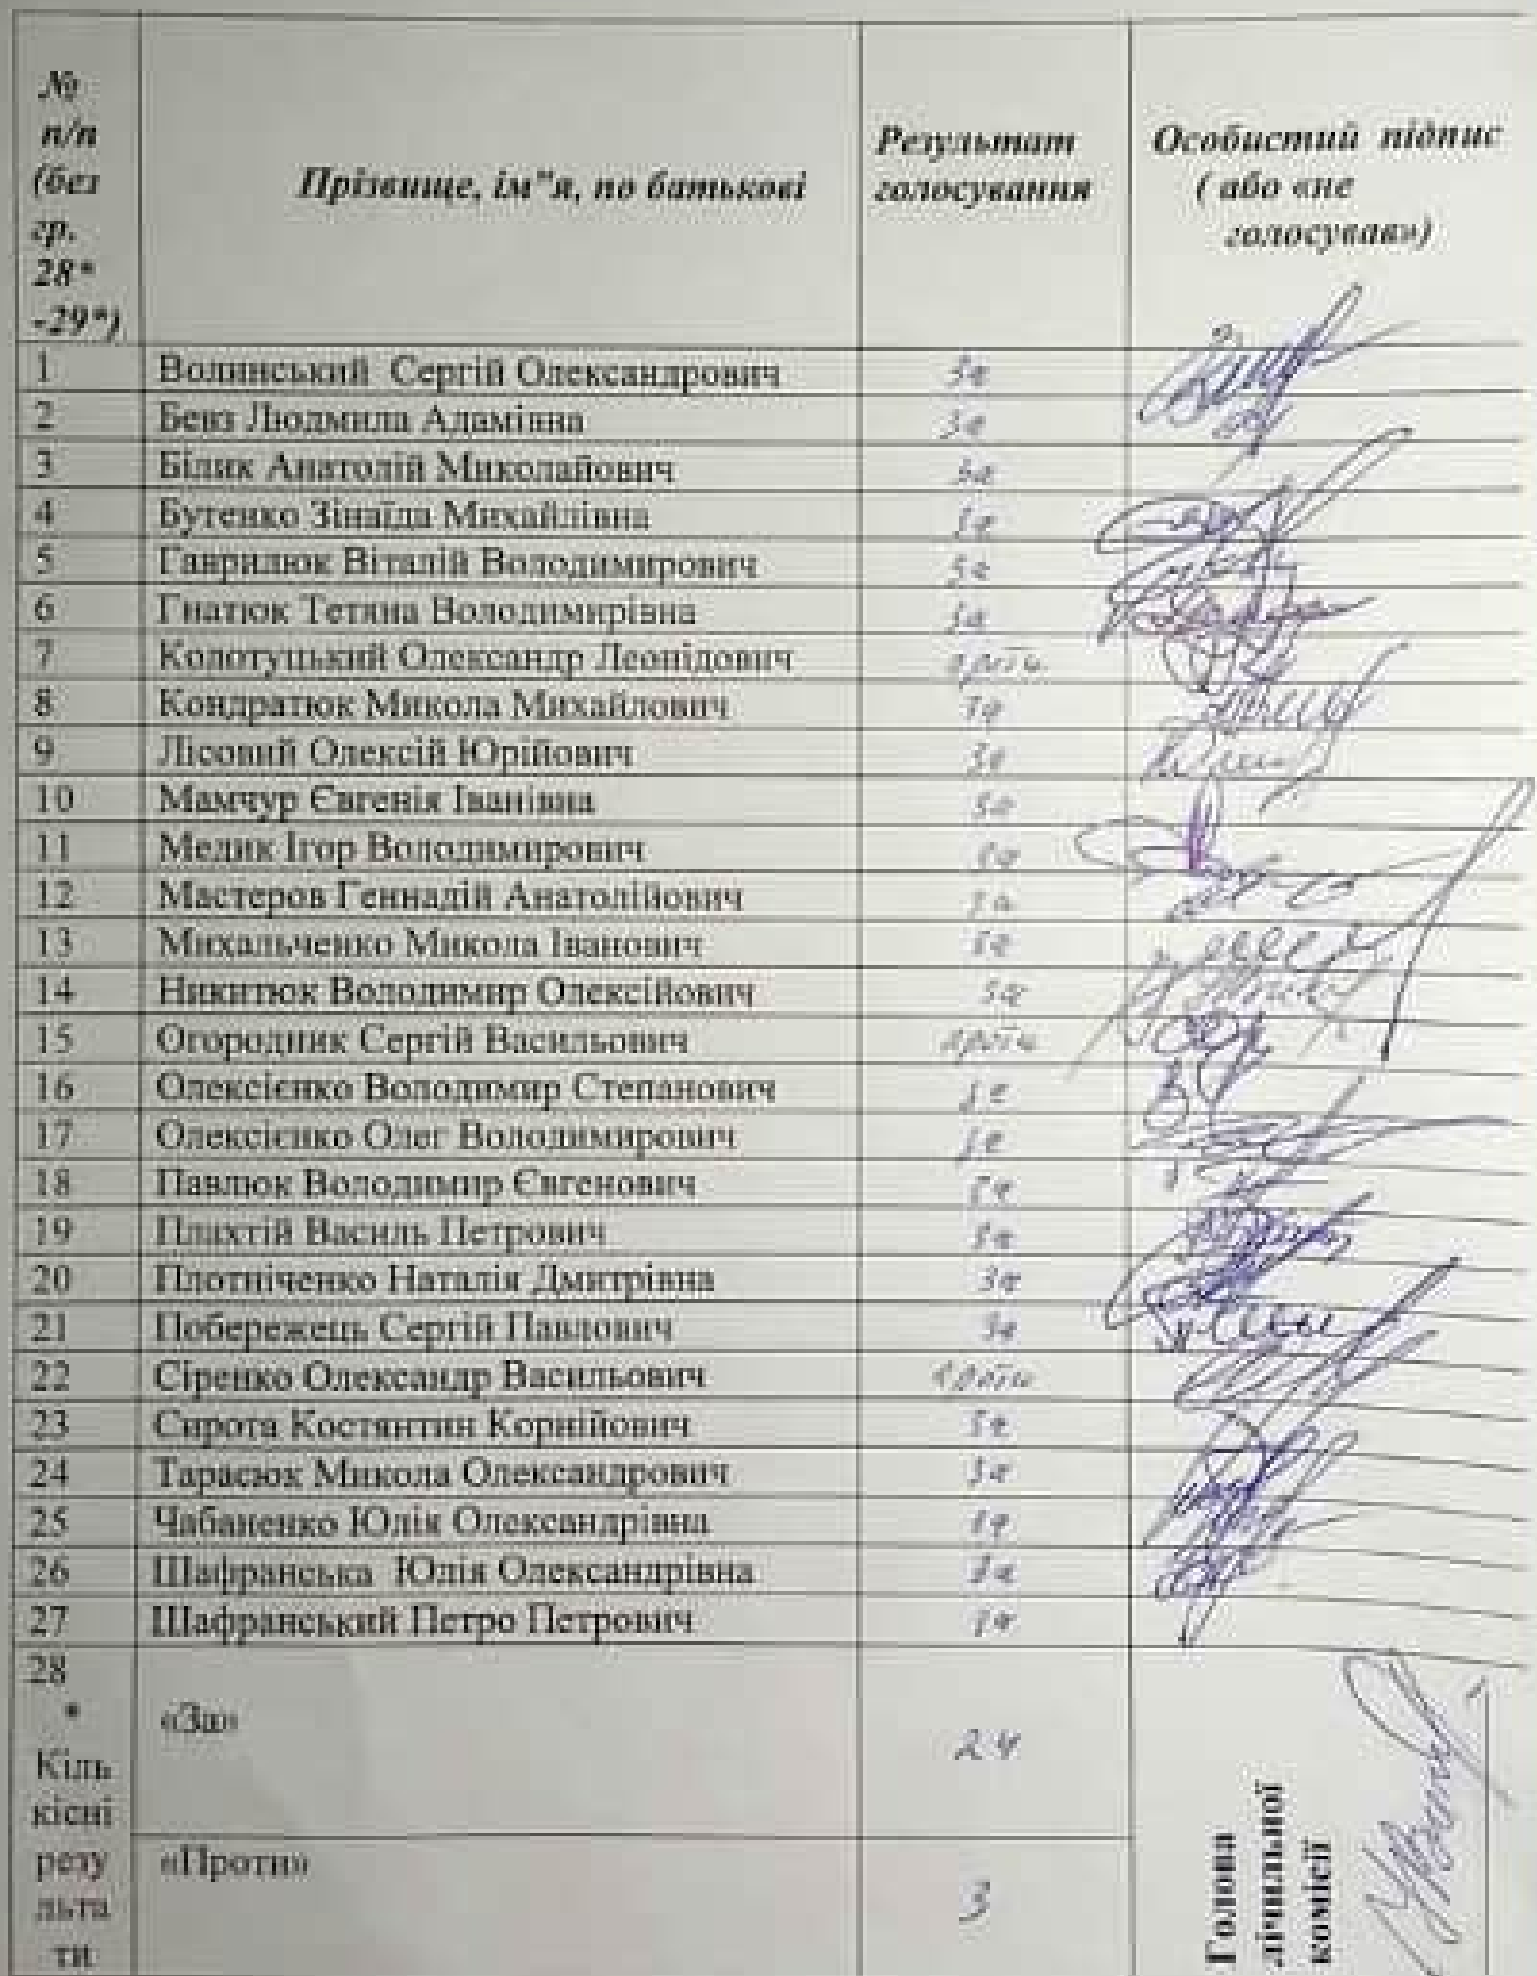 №
п/п
(без
гр.
28*
-29*)
Прізвище, ім"я, по батькові
Результат
голосування
Особистий підпис
( або «не
голосував»)
1 Волинський Сергій Олександрович за
2 Бевз Людмила Адамівна за
3 Білик Анатолій Миколайович за
4 Бутенко Зінаїда Михайлівна за
5 Гаврилюк Віталій Володимирович за
6 Гнатюк Тетяна Володимирівна за
7 Колотуцький Олександр Леонідович проти
8 Кондратюк Микола Михайлович за
9 Лісовий Олексій Юрійович за
10 Мамчур Євгенія Іванівна за
11 Медик Ігор Володимирович за
12 Мастеров Геннадій Анатолійович за
13 Михальченко Микола Іванович за
14 Никитюк Володимир Олексійович за
15 Огородник Сергій Васильович проти
16 Олексієнко Володимир Степанович за
17 Олексієнко Олег Володимирович за
18 Павлюк Володимир Євгенович за
19 Плахтій Василь Петрович за
20 Плотніченко Наталія Дмитрівна за
21 Побережець Сергій Павлович за
22 Сіренко Олександр Васильович проти
23 Сирота Костянтин Корнійович за
24 Тарасюк Микола Олександрович за
25 Чабаненко Юлія Олександрівна за
26 Шафранська Юлія Олександрівна за
27 Шафранський Петро Петрович за
28
*
Кіль
кісні
резу
льта
ти
«За» 24
«Проти» 3
Голова
лічильної
комісії